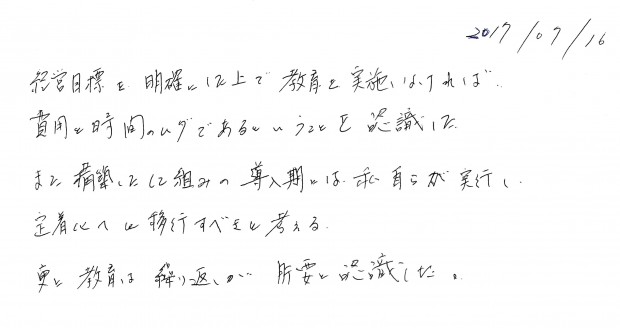 2017/07/16
経営目標を明確にした上で教育を実施しなければ、
費用と時間のムダであるということを認識した。
また構築した仕組みの導入期には、私自らが実行し、
定着化へと移行すべきと考える。
更に教育は繰り返しが肝要と認識した。